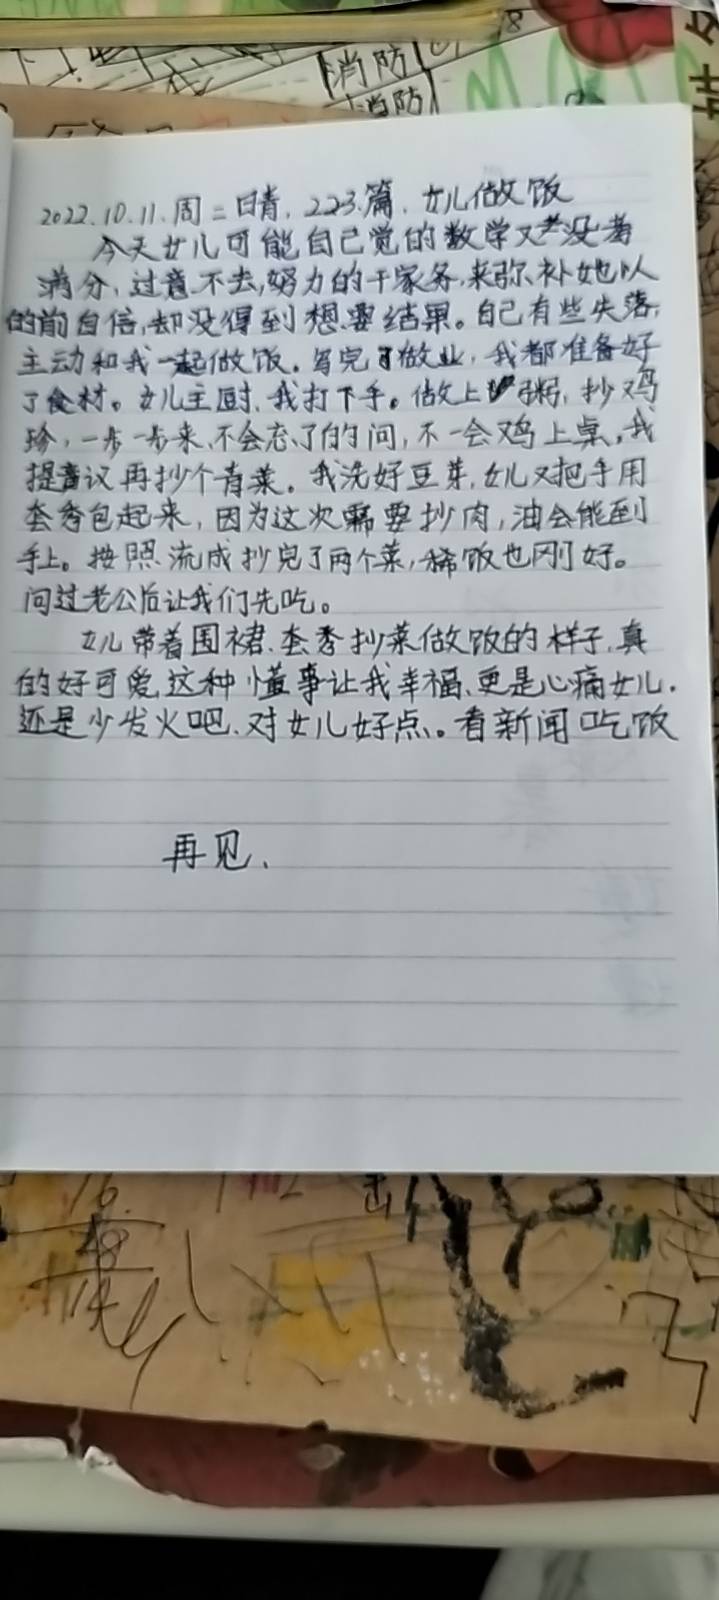 消防
消防
2022.10.11.周二晴.223.篇.女儿做饭
今天女儿可能自己觉的数学又差没考
满分、过意不去,努力的干家务,来弥补她以
的前自信,却没得到想要结果。自己有些失落,
主动和我一起做饭。写完了做业,我都准备好
了食材。女儿主厨、我打下手。做上粥,抄鸡
珍,一步一步来、不会忘了的问,不一会鸡上桌,我
提意议再抄个青菜。我洗好豆芽,女儿又把手用
套秀包起来,因为这次需要抄肉,油会能到
手上。按照流成抄完了两个菜,稀饭也刚好。
问过老公后让我们先吃。
女儿带着围裙、套秀抄菜做饭的样子,真
的好可爱,这种懂事让我幸福、更是心痛女儿.
还是少发火吧、对女儿好点。看新闻吃饭
再见、